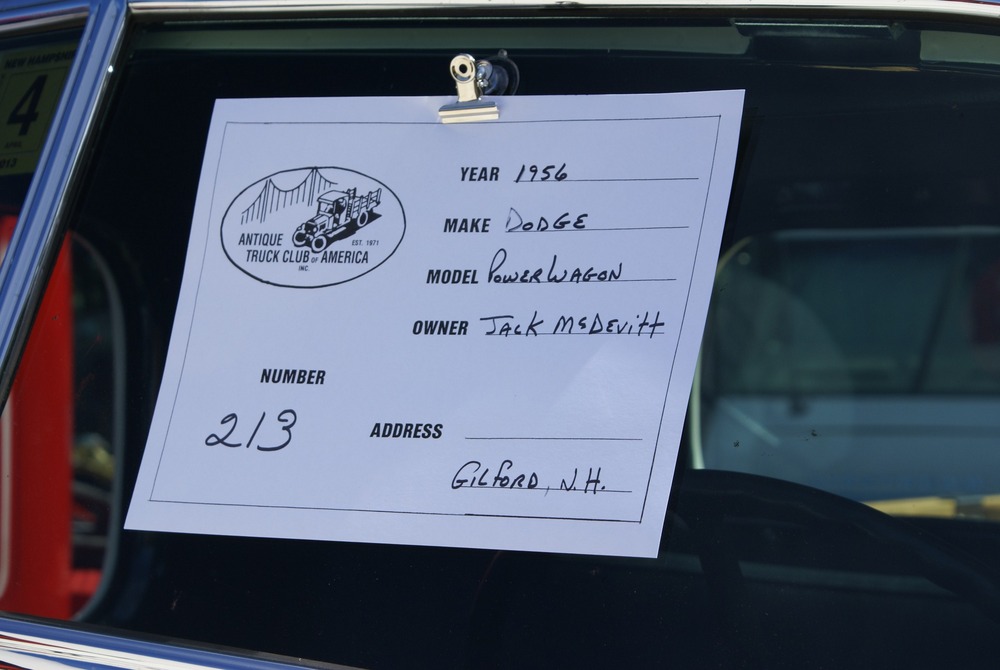 NEW HAMPSHIRE
4
APRIL
2013
ANTIQUE
EST. 1971
TRUCK CLUB OF AMERICA
INC.
YEAR 1956
MAKE DODGE
MODEL POWER WAGON
OWNER JACK McDEVITT
NUMBER
213
ADDRESS
GILFORD, N.H.